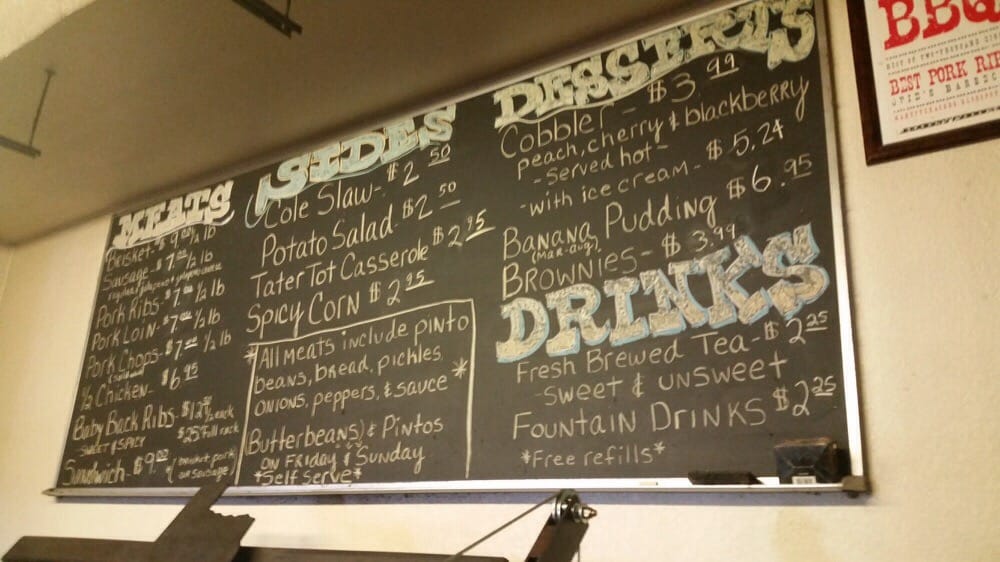 MEATS
Brisket - $9.00 ½ lb
Sausage - $7.00 ½ lb
Pork Ribs - $7.00 ½ lb
Pork Loin - $7.00 ½ lb
Pork Chops - $7.00 ½ lb
½ Chicken - $6.95
Baby Back Ribs -
SWEET & SPICY $25 Full rack
Sandwich - $9.00
SIDES
Cole Slaw - $2.50
Potato Salad - $2.50
Tater Tot Casserole $2.95
Spicy Corn $2.95
*All meats include pinto
beans, bread, pickles
onions, peppers, & sauce*
(Butterbeans) & Pintos
on Friday & Sunday
*Self Serve*
DESSERTS
Cobbler - $3.99
peach, cherry & blackberry
- Served hot -
- with ice cream - $5.24
Banana Pudding $6.95
(Mar-Aug)
Brownies - $3.99
DRINKS
Fresh Brewed Tea - $2.25
Sweet & Unsweet
Fountain Drinks $2.25
*Free refills*
BBQ
BEST PORK RIB